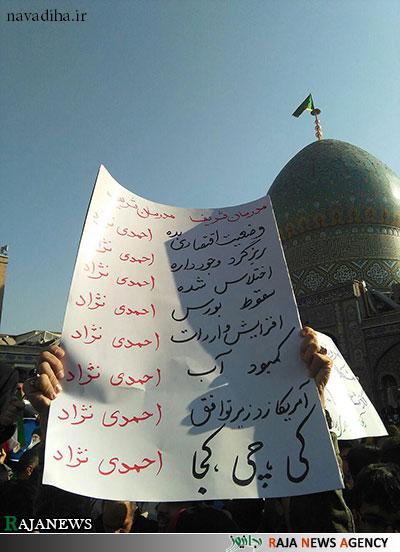 navadiha.ir
مدرسان شریف مدرسان شریف
وضعیت اقتصادی بده احمدی نژاد
ریزگرد وجود داره احمدی نژاد
اختلاس شده احمدی نژاد
سقوط بورس احمدی نژاد
افزایش واردات احمدی نژاد
کمبود آب احمدی نژاد
آمریکا زد زیر توافق احمدی نژاد
کی ،چی ،کجا احمدی نژاد
RAJANEWS
RAJA NEWS AGENCY